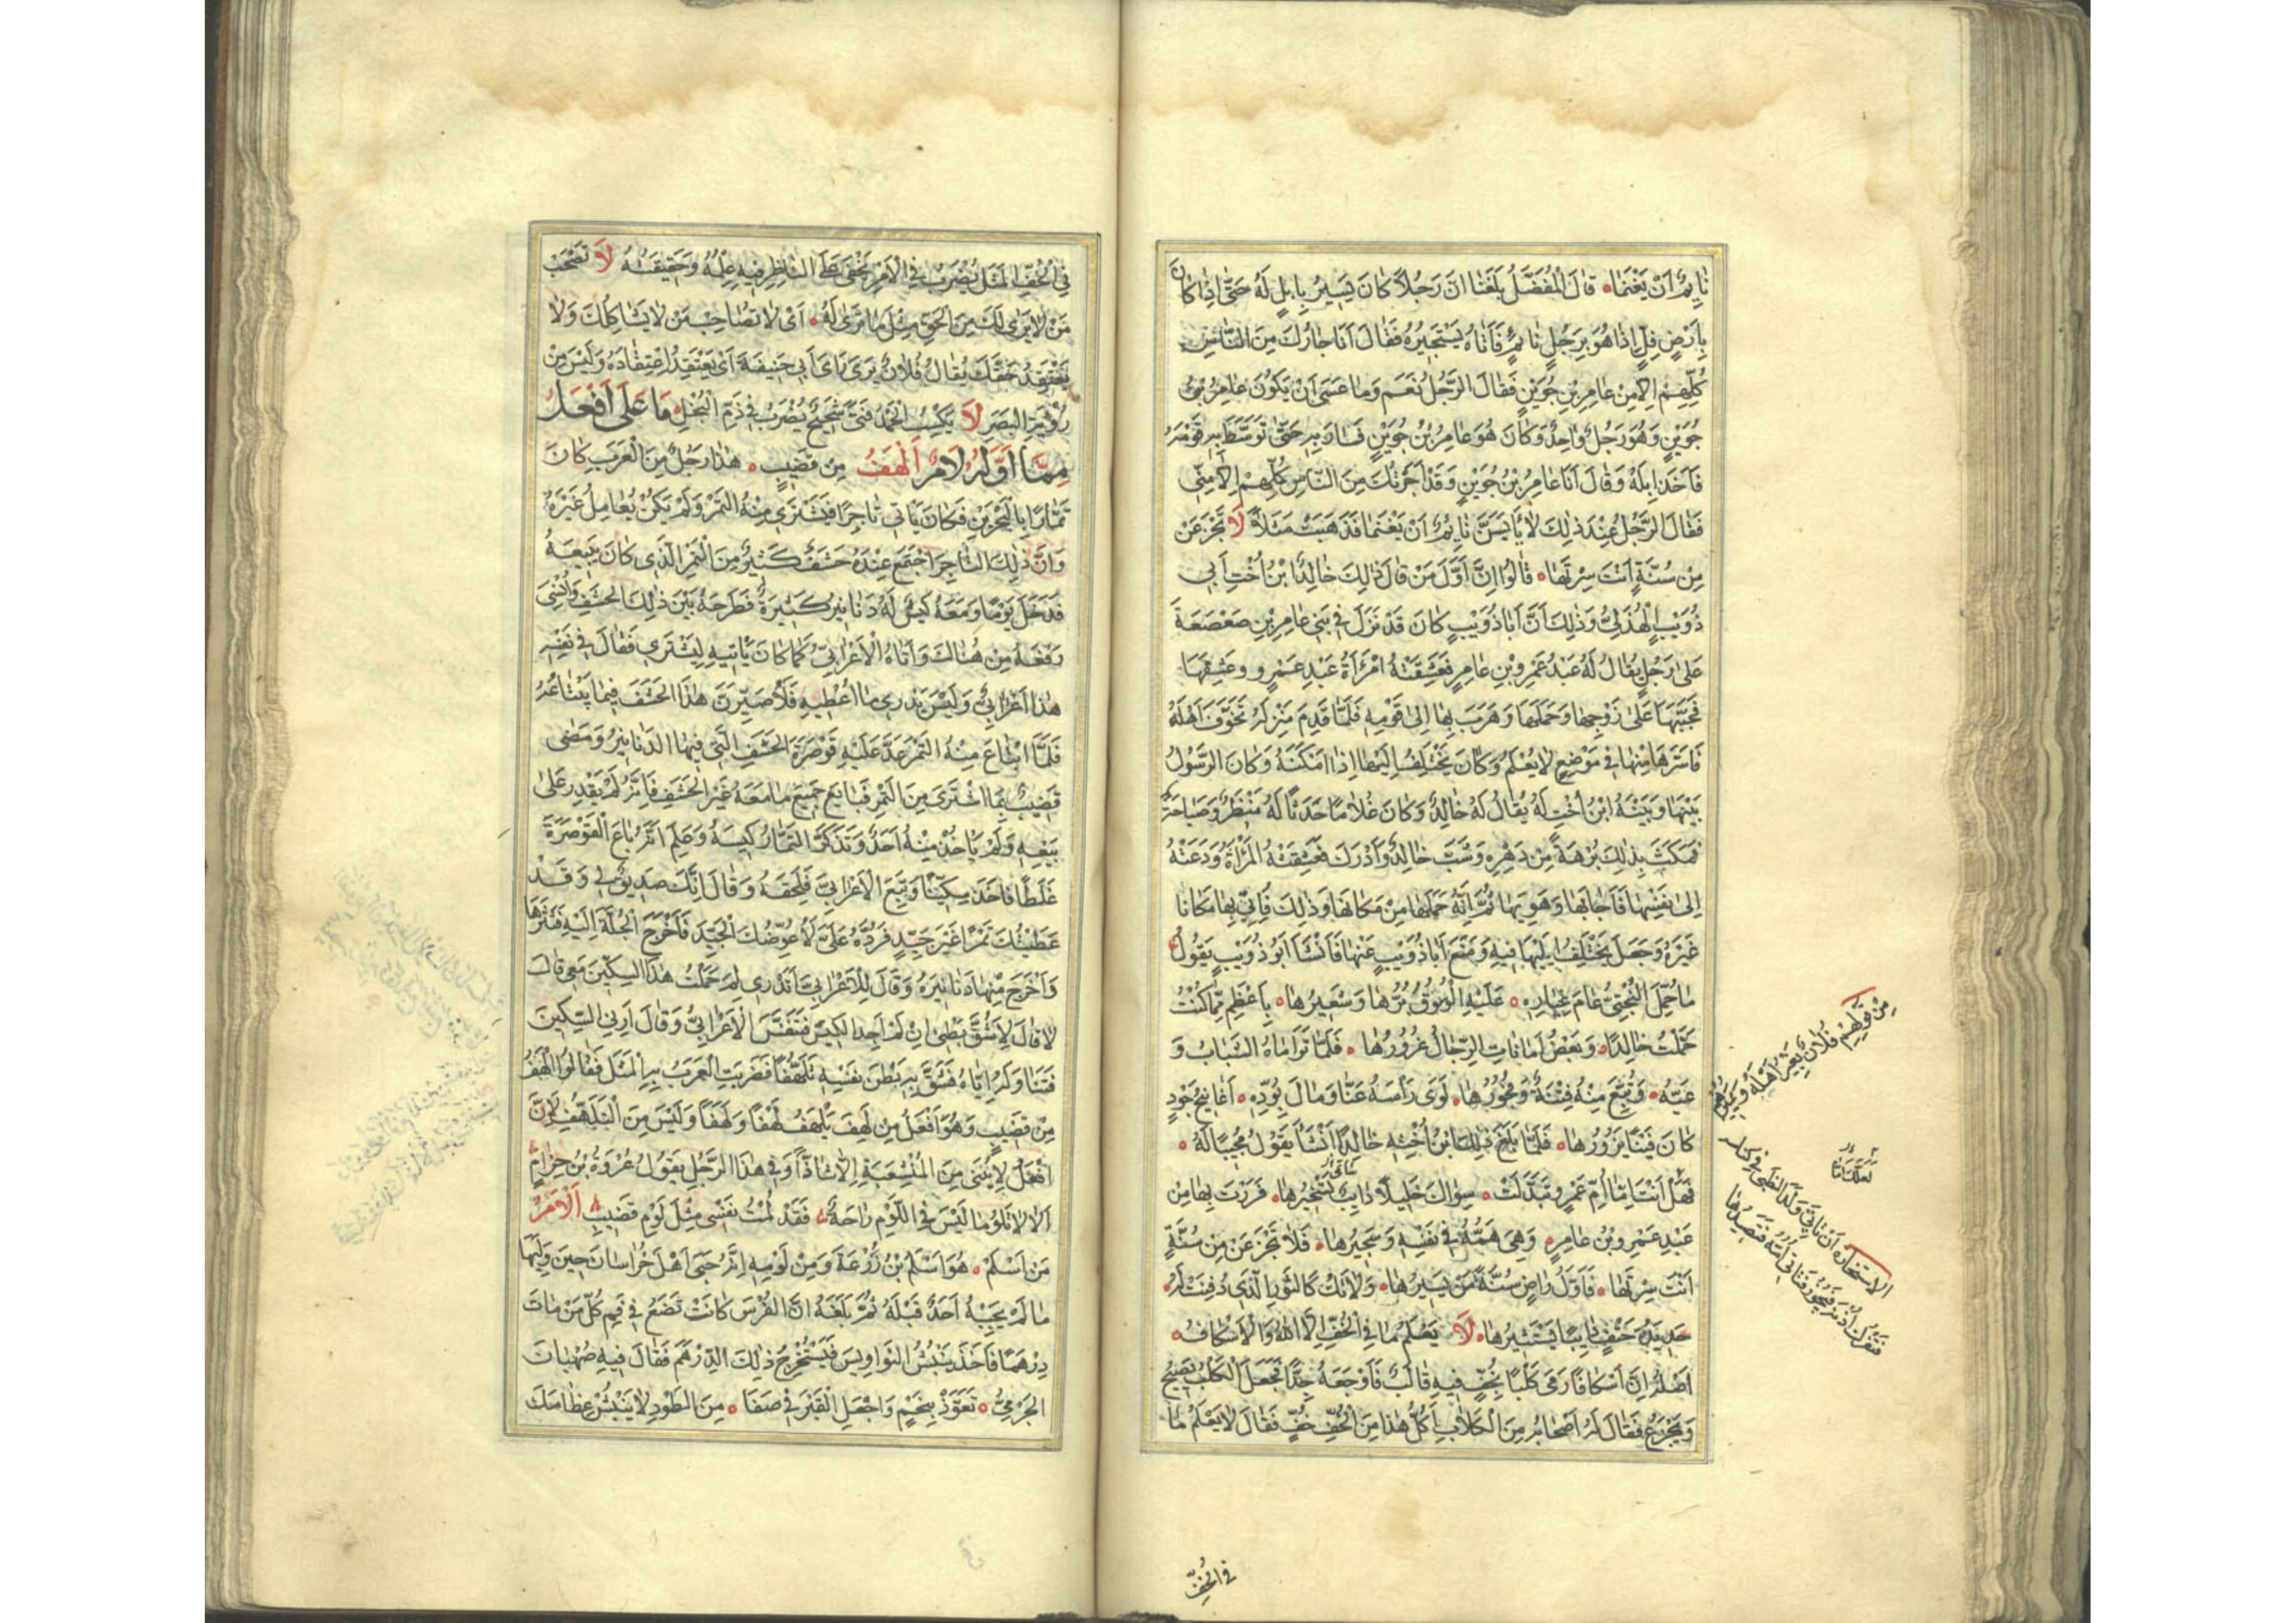 نٰايِمٌ اَنْ يَغْنَمٰا ۰ قٰالَ الْمُفَضَّلُ بَلَغَنٰا اَنَّ رَجُلًا كٰانَ يَسِيرُ بِاِبِلٍ لَهُ حَتّٰى اِذٰا كٰانَ
بِاَرْضٍ فِلٍّ اِذٰا هُوَ بِرَجُلٍ نٰايِمٍ فَاَتٰاهُ يَسْتَجِيرُهُ فَقٰالَ اَنَا جٰارُكَ مِنَ النّٰاسِ
كُلِّهِمْ اِلّٰا مِنْ عٰامِرِ بْنِ جُوَيْنٍ فَقٰالَ الرَّجُلُ نَعَمْ وَمٰا عَسَى اَنْ يَكُونَ عٰامِرُ بْنُ
جُوَيْنٍ وَهُوَ رَجُلٌ وٰاحِدٌ وَكٰانَ هُوَ عٰامِرُ بْنُ جُوَيْنٍ فَسٰارَ بِهِ حَتّٰى تَوَسَّطَ بِهِ قَوْمَهُ
فَاَخَذَ اِبِلَهُ وَقٰالَ اَنَا عٰامِرُ بْنُ جُوَيْنٍ وَقَدْ اَجَرْتُكَ مِنَ النّٰاسِ كُلِّهِمْ اِلّٰا مِنِّي
فَقٰالَ الرَّجُلُ عِنْدَ ذٰلِكَ لٰا يَايَسَنَّ نٰايِمٌ اَنْ يَغْنَمٰا فَذَهَبَتْ مَثَلًا لٰا تَجْزَعَنْ
مِنْ سُنَّةٍ اَنْتَ سِرْتَهٰا ۰ قٰالُوا اِنَّ اَوَّلَ مَنْ قٰالَ ذٰلِكَ خٰالِدُ ابْنُ اُخْتِ اَبِي
ذُوَيْبٍ الْهُذَلِيُّ وَذٰلِكَ اَنَّ اَبٰا ذُوَيْبٍ كٰانَ قَدْ نَزَلَ فِي بَنِي عٰامِرِ بْنِ صَعْصَعَةَ
عَلٰى رَجُلٍ يُقٰالُ لَهُ عَبْدُ عَمْرِو بْنِ عٰامِرٍ فَعَشِقَتْهُ امْرَاَةُ عَبْدِ عَمْرٍو وَعَشِقَهَا
فَخَبَّبَهَا عَلٰى زَوْجِهٰا وَحَمَلَهَا وَهَرَبَ بِهٰا اِلٰى قَوْمِهِ فَلَمّٰا قَدِمَ مَنْزِلَهُ تَخَوَّفَ اَهْلَهُ
فَاَسَرَّهَا مِنْهٰا فِي مَوْضِعٍ لٰا يُعْلَمُ وَكٰانَ يَخْتَلِفُ اِلَيْهٰا اِذٰا اَمْكَنَهُ وَكٰانَ الرَّسُولُ
بَيْنَهٰا وَبَيْنَهُ ابْنُ اُخْتٍ لَهُ يُقٰالُ لَهُ خٰالِدٌ وَكٰانَ غُلٰامًا حَدَثًا لَهُ مَنْظَرٌ وَصَبٰاحَةٌ
فَمَكَثَ بِذٰلِكَ بُرْهَةً مِنْ دَهْرِهِ وَشَبَّ خٰالِدٌ وَاَدْرَكَ فَعَشِقَتْهُ الْمَرْاَةُ وَدَعَتْهُ
اِلٰى نَفْسِهٰا فَاَجٰابَهٰا وَهَوِيَهٰا ثُمَّ اِنَّهُ حَمَلَهٰا مِنْ مَكٰانِهٰا وَذٰلِكَ فَاَتٰى بِهٰا مَكٰانًا
غَيْرَهُ وَجَعَلَ يَخْتَلِفُ اِلَيْهَا فِيهِ وَمَنَعَ اَبٰا ذُوَيْبٍ عَنْهٰا فَاَنْشَاَ اَبُو ذُوَيْبٍ يَقُولُ
مٰا حُمِّلَ الْبُخْتِيُّ عٰامَ غِيٰارِهِ ۰ عَلَيْهِ الْوُسُوقُ بُرُّهٰا وَشَعِيرُهٰا ۰ بِاَعْظَمِ مِمّٰا كُنْتُ
حَمَّلْتُ خٰالِدًا ۰ وَبَعْضُ اَمٰانٰاتِ الرِّجٰالِ غُرُورُهٰا ۰ فَلَمّٰا تَرٰامٰاهُ الشَّبٰابُ وَ
غَيُّهُ ۰ وَتُبِّعَ مِنْهُ فِتْنَةٌ وَفُجُورُهٰا ۰ لَوَى رَاْسَهُ عَنّٰا وَمٰالَ بِوُدِّهِ ۰ اَغٰانِيجُ خَوْدٍ
كٰانَ فِينٰا يَزُورُهٰا ۰ فَلَمّٰا بَلَغَ ذٰلِكَ ابْنَ اُخْتِهِ خٰالِدًا اَنْشَاَ يَقُولُ مُجِيبًا لَهُ ۰
فَهَلْ اَنْتَ اِمّٰا اُمُّ عَمْرٍو تَبَدَّلَتْ ۰ سِوٰاكَ خَلِيلًا دٰايِبٌ تَسْتَجِيرُهٰا ۰ فَرَرْتَ بِهٰا مِنْ
عَبْدِ عَمْرِو بْنِ عٰامِرٍ ۰ وَهِيَ هَمُّهُ فِي نَفْسِهِ وَسَجِيرُهٰا ۰ فَلٰا تَجْزَعَنْ مِنْ سُنَّةٍ
اَنْتَ سِرْتَهٰا ۰ فَاَوَّلُ رٰاضٍ سُنَّةً مَنْ يَسِيرُهٰا ۰ وَلٰا تَكُ كَالثَّوْرِ الَّذِي دُفِنَتْ لَهُ ۰
حَدِيدَةُ حَتْفٍ دٰايِبًا يَسْتَثِيرُهٰا ۰ لٰا يَعْلَمُ مٰا فِي الْخُفِّ اِلَّا اللّٰهُ وَالْاِسْكٰافُ ۰
اَصْلُهُ اِنَّ اِسْكٰافًا رَمَى كَلْبًا بِخُفٍّ فِيهِ قٰالَبٌ فَاَوْجَعَهُ جِدًّا فَجَعَلَ الْكَلْبُ يَصِيحُ
وَيَجْزَعُ فَقٰالَ لَهُ اَصْحٰابُهُ مِنَ الْكِلٰابِ اَكُلُّ هٰذٰا مِنَ الْخُفِّ خُفٍّ فَقٰالَ لٰا يَعْلَمُ مٰا
مِنْ قَوْلِهِمْ فُلٰانٌ يَعِيرُ اَهْلَهُ وَيَمِيرُهُمْ
الاستخارة ان تاتي ولد الظبي في كناسه
فتعرك اذنه فيخور فتاتي امه فتصيدها
فِي الْخُفِّ
فِي الْخُفِّ الْمَثَلُ يُضْرَبُ فِي الْاَمْرِ يَخْفَى عَلَى النّٰاظِرِ فِيهِ عِلْمُهُ وَحَقِيقَتُهُ لٰا تَصْحَبْ
مَنْ لٰا يَرٰى لَكَ مِنَ الْحَقِّ مِثْلَ مٰا تَرٰى لَهُ ۰ اَيْ لٰا تُصٰاحِبْ مَنْ لٰا يُشٰاكِلُكَ وَلٰا
يَعْتَقِدُ حَقَّكَ يُقٰالُ فُلٰانٌ يَرَى رَاْىَ اَبِي حَنِيفَةَ اَيْ يَعْتَقِدُ اعْتِقٰادَهُ وَلَيْسَ مِنْ
رُؤْيَةِ الْبَصَرِ لٰا يَكْسِبُ الْحَمْدَ فَتًى شَحِيحٌ يُضْرَبُ فِي ذَمِّ الْبُخْلِ ۰ مٰا عَلَى اَفْعَلُ
مِمّٰا اَوَّلُهُ لٰامٌ اَلْهَفُ مِنْ قَضِيبٍ ۰ هٰذٰا رَجُلٌ مِنَ الْعَرَبِ كٰانَ
تَمّٰارًا بِالْبَحْرَيْنِ فَكٰانَ يَاْتِي تٰاجِرًا فَيَشْتَرِي مِنْهُ التَّمْرَ وَلَمْ يَكُنْ يُعٰامِلُ غَيْرَهُ
وَاِنَّ ذٰلِكَ التّٰاجِرَ اجْتَمَعَ عِنْدَهُ حَشَفٌ كَثِيرٌ مِنَ التَّمْرِ الَّذِي كٰانَ يَبِيعُهُ
فَدَخَلَ يَوْمًا وَمَعَهُ كِيسٌ لَهُ دَنٰانِيرُ كَثِيرَةٌ فَطَرَحَهُ بَيْنَ ذٰلِكَ الْحَشَفِ وَاُنْسِيَ
رَفْعَهُ مِنْ هُنٰاكَ وَاَتٰاهُ الْاَعْرٰابِيُّ كَمٰا كٰانَ يَاْتِيهِ لِيَشْتَرِي فَقٰالَ فِي نَفْسِهِ
هٰذٰا اَعْرٰابِيٌّ وَلَيْسَ يَدْرِي مٰا اُعْطِيهِ فَلَاُصَيِّرَنَّ هٰذٰا الْحَشَفَ فِيمٰا يَبْتٰاعُهُ
فَلَمَّا ابْتٰاعَ مِنْهُ التَّمْرَ عَدَّ عَلَيْهِ قَوْصَرَةَ الْحَشَفِ الَّتِي فِيهَا الدَنٰانِيرُ وَمَضٰى
قَضِيبٌ بِمَا اشْتَرَى مِنَ التَّمْرِ فَبٰاعَ جَمِيعَ مٰا مَعَهُ غَيْرَ الْحَشَفِ فَاِنَّهُ لَمْ يَقْدِرْ عَلٰى
بَيْعِهِ وَلَمْ يَاْخُذْ مِنْهُ اَحَدٌ وَتَذَكَّرَ التَّمّٰارُ كِيسَهُ وَعَلِمَ اَنَّهُ بٰاعَ الْقَوْصَرَةَ
غَلَطًا فَاَخَذَ سِكِّينًا وَتَبِعَ الْاَعْرٰابِيَّ فَلَحِقَهُ وَقٰالَ اِنَّكَ صَدِيقٌ لِي وَقَدْ
اَعْطَيْتُكَ تَمْرًا غَيْرَ جَيِّدٍ فَرُدَّهُ عَلَيَّ لِاُعَوِّضَكَ الْجَيِّدَ فَاَخْرَجَ الْجُلَّةَ اِلَيْهِ فَنَثَرَهٰا
وَاَخْرَجَ مِنْهٰا دَنٰانِيرَهُ وَقٰالَ لِلْاَعْرٰابِيِّ اَتَدْرِي لِمَ حَمَلْتُ هٰذٰا السِّكِّينَ مَعِي قٰالَ
لٰا قٰالَ لِاَشُقَّ بَطْنِي اِنْ لَمْ اَجِدِ الْكِيسَ فَتَنَفَّسَ الْاَعْرٰابِيُّ وَقٰالَ اَرِنِي السِّكِّينَ
فَنٰاوَلَهُ اِيّٰاهُ فَشَقَّ بِهِ بَطْنَ نَفْسِهِ تَلَهُّفًا فَضَرَبَتِ الْعَرَبُ بِهِ الْمَثَلَ فَقٰالُوا اَلْهَفُ
مِنْ قَضِيبٍ وَهُوَ اَفْعَلُ مِنْ لَهِفَ يَلْهَفُ لَهْفًا وَلَهَفًا وَلَيْسَ مِنَ التَّلَهُّفِ لِاَنَّ
اَفْعَلَ لٰا يُبْنَى مِنَ الْمُنْشَعِبَةِ اِلّٰا شٰاذًّا وَفِي هٰذٰا الرَّجُلِ يَقُولُ عُرْوَةُ بْنُ حِزٰامٍ
اَلٰا لٰا تَلُومٰا لَيْسَ فِي اللَّوْمِ رٰاحَةٌ ۰ فَقَدْ لُمْتُ نَفْسِي مِثْلَ لَوْمِ قَضِيبِ اَلْاَمُ
مَنْ اَسْلَمَ ۰ هُوَ اَسْلَمُ بْنُ زُرْعَةَ وَمِنْ لَوْمِهِ اِنَّهُ جَبَى اَهْلَ خُرٰاسٰانَ حِينَ وَلِيَهٰا
مٰا لَمْ يَجْبِهِ اَحَدٌ قَبْلَهُ ثُمَّ بَلَغَهُ اَنَّ الْفُرْسَ كٰانَتْ تَضَعُ فِي فَمِ كُلِّ مَنْ مٰاتَ
دِرْهَمًا فَاَخَذَ يَنْبُشُ النَّوٰاوِيسَ فَيَسْتَخْرِجُ ذٰلِكَ الدِّرْهَمَ فَقٰالَ فِيهِ صُهْبٰانُ
الْجَرْمِيُّ ۰ تَعَوَّذْ بِنَجْمٍ وَاجْعَلِ الْقَبْرَ فِي صَفٰا ۰ مِنَ الطَّوْدِ لٰا يَنْبُشْ عِظٰامَكَ